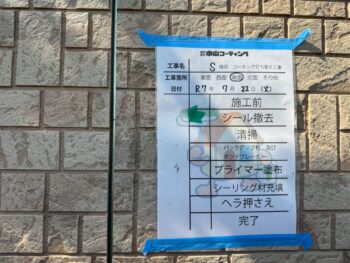 中山コーティング
工事名 S 様邸 コーキング打ち替え工事
工事箇所 東面 西面 南面 北面 その他
日付 R7 年 7 月 22 日(火)
施工前
シール撤去
清掃
バックアップ材、及び
ボンドブレーカー
プライマー塗布
シーリング材充填
ヘラ押さえ
完了